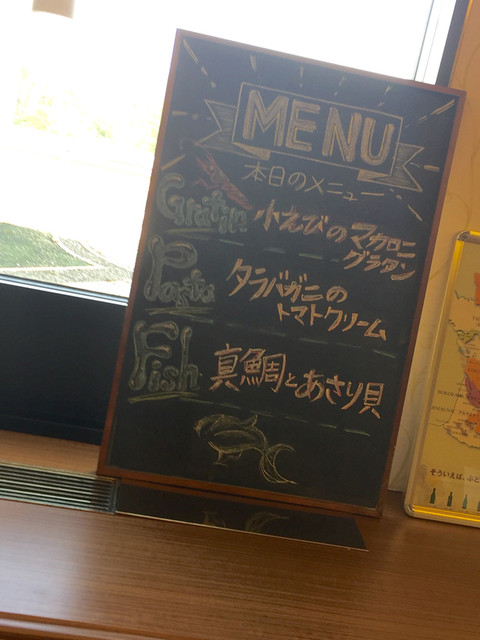 MENU
本日のメニュー
Gratin 小えびのマカロニ
グラタン
Pasta タラバガニの
トマトクリーム
Fish 真鯛とあさり貝
そういえば、ぶど